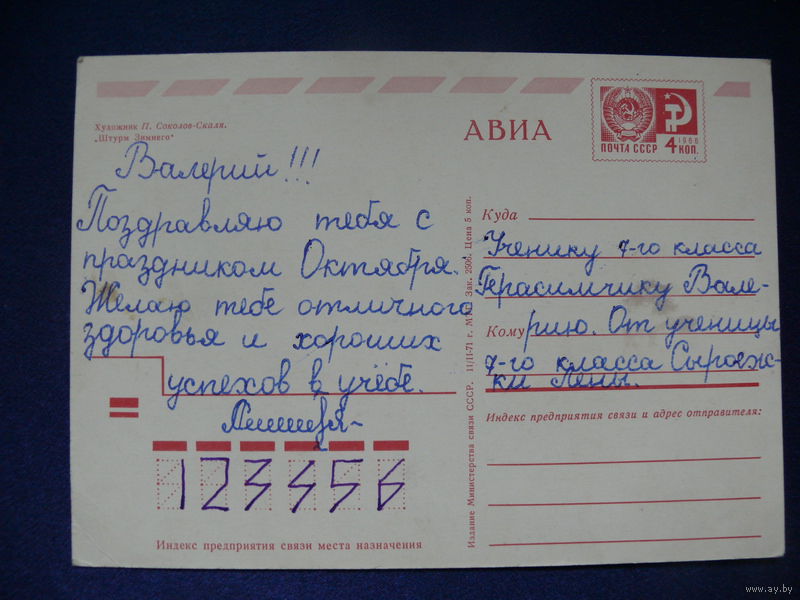 Художник П. Соколов-Скаля.
„Штурм Зимнего“
АВИА
ПОЧТА СССР
1966
4 КОП.
Валерий!!!
Поздравляю тебя с
праздником Октября.
Желаю тебе отличного
здоровья и хороших
успехов в учёбе.
123456
Индекс предприятия связи места назначения
Издание Министерства связи СССР. 11/II-71 г. Зак. 2506. Цена 5 коп.
Куда
Ученику 7-го класса
Герасимчику Вале-
Кому рию. От ученицы
7-го класса Сыроеж-
ки Лены.
Индекс предприятия связи и адрес отправителя:
www.ay.by